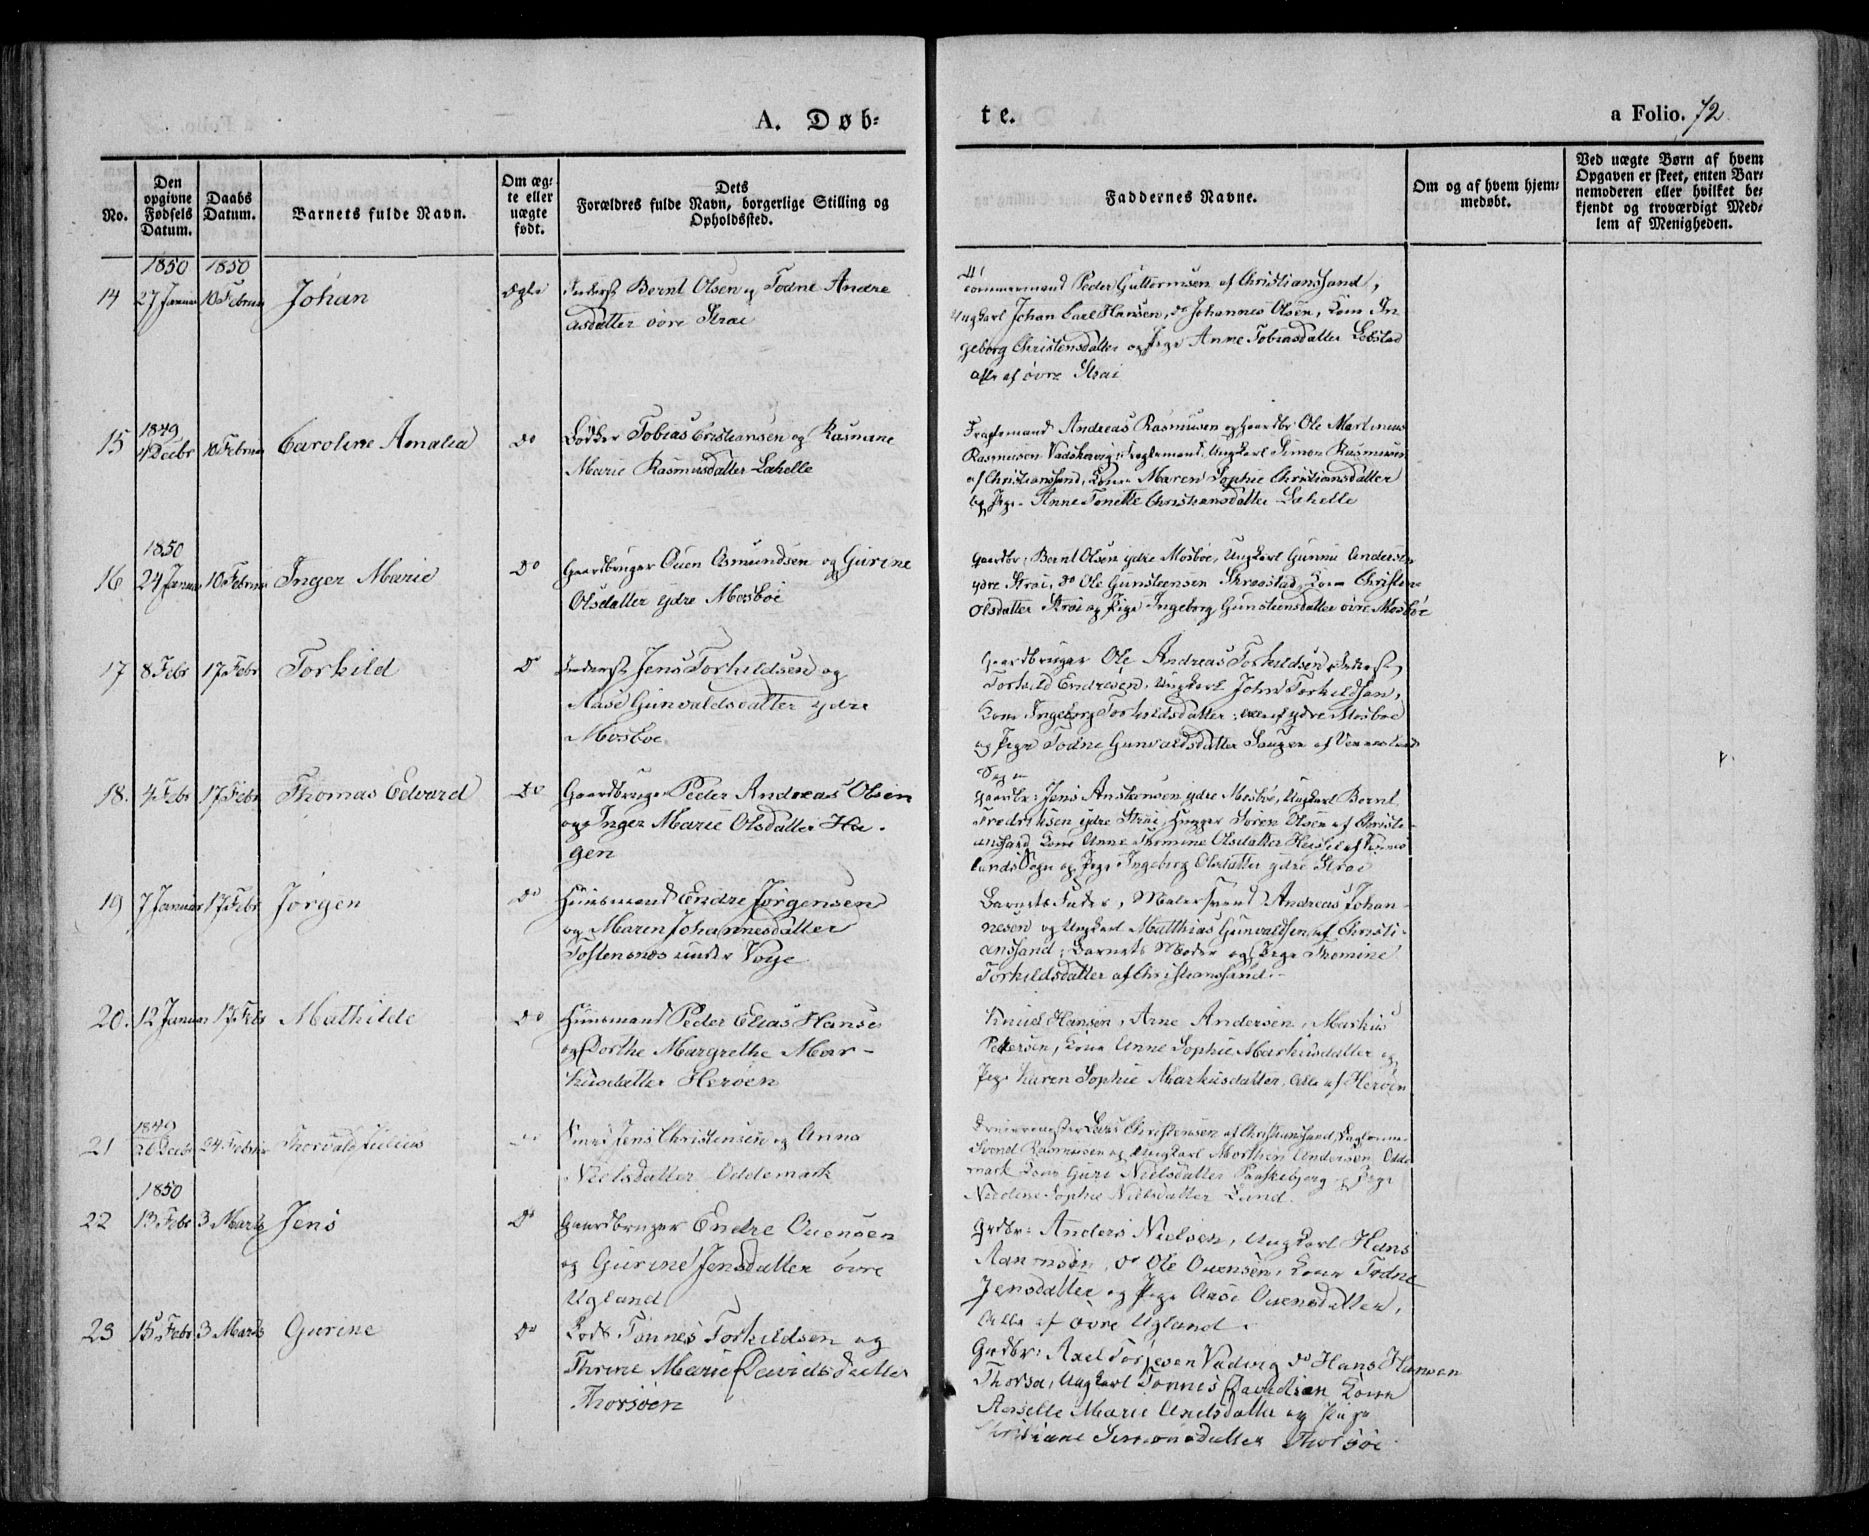 A. Døb-
te.
a Folio. 72
No.
Den opgivne Fødsels Datum.
Daabs Datum.
Barnets fulde Navn.
Om ægte eller uægte født.
Dets
Forældres fulde Navn, borgerlige Stilling og
Opholdssted.
Faddernes Navne.
Om og af hvem hjemmedøbt.
Ved uægte Børn af hvem
Opgaven er skeet, enten Bar-
nemoderen eller hvilket be-
kjendt og troværdigt Med-
lem af Menigheden.
1850 1850
14 27 Januar 10 Februar Johan ægte Inderst Bernt Olsen og Todne Andre
asdatter øvre Strai
Tømmermand Peder Guttormsen af Christianssand,
Ungkarl Johan Carl Hansen, do Johannes Olsen, Kone In
geborg Christensdatter og Pige Anne Tobiasdatter
alle af øvre Strai
1849
15 4 Decbr 10 Februar Caroline Amalia Do Tobias Cristiansen og Rasmine
Marie Rasmusdatter Lahelle
Andreas Rasmusen og Gaardbr Ole Martinus
Rasmusen Ungkarl Simon Rasmusen
af Christianssand, Kone Maren Sophie Christiansdatter
og Pige Anne Tonette Christiansdatter Lahelle
1850
16 24 Januar 10 Februar Inger Marie Do Gaardbruger Ouen Osmundsen og Gurine
Olsdatter ydre Mosbøe
Gaardbr: Bernt Olsen ydre Mosbøe, Ungkarl Gunnu Andersen
ydre Strai, do Ole Gunsteensen Kone Christine
Olsdatter Strai og Pige Ingeborg Gunsteensdatter øvre Mosbøe
17 8 Febr 17 Febr Torkild Do Inderst Jens Torkildsen og
Aase Gunvaldsdatter ydre
Mosbøe
Gaardbruger Ole Andreas Torkildsen, Inderst
Torkild Endresen, Ungkarl John Torkildsen,
Kone Ingeborg Torkildsdatter; alle af ydre Mosbøe
og Pige Todne Gunvaldsdatter af Vennesland
Sogn
18. 4 Febr 17 Febr Thomas Edvard Do Gaardbruger Peder Andreas Olsen
og Inger Marie Olsdatter Ha-
gen
Gaardbr: Jens Anstensen ydre Mosbøe, Ungkarl Bernt
Fredriksen ydre Strai, Soren Olsen af Christi
anssand Kone Anne Thomine Olsdatter af
landsSogn og Pige Ingeborg Olsdatter ydre Strai
19 7 Januar 17 Febr Jørgen Do Huusmand Endre Jørgensen
og Maren Johannesdatter
Tostensnes under Voie
Barnets Fader, Malersvend Andreas Johan-
nesen og Ungkarl Matthias Gunvaldsen af Christi-
anssand; Barnets Moder og Pige Thomine
Torkildsdatter af Christianssand.
20. 12 Januar 17 Febr Mathilde Do Huusmand Peder Elias Hansen
og Dorthe Margrethe Mar-
kusdatter Herøen
Knud Hansen, Arne Andersen, Markus
Pettersen, Kone Anne Sophie Markusdatter og
Pige Karen Sophie Markusdatter, Alle af Herøen
1849
21 24 Februar Thorvald Julius Jens Christensen og Anna
Nielsdatter Oddemark
Lars Christensen af Christianssand,
Svend Rasmusen og Ungkarl Morthen Andersen Odde
mark Kone Guri Nielsdatter og Pige
Sophie Nielsdatter Lund.
1850
22 13 Febr 3 Marts Jens Do Gaardbruger Endre Ouensen
og Gurine Jensdatter øvre
Ugland
Grdbr: Anders Nielsen, Ungkarl Hans
do Ole Ouensen, Kone Todne
Jensdatter og Pige Aase Ouensdatter,
Alle af øvre Ugland.
23 15 Febr 3 Marts Gurine Do Tønnes Torkildsen og
Thrine Marie Davidsdatter
Thorsøen
Grdbr: Axel do Hans Hansen
Ungkarl Tønnes Davidsen Kone
Marie og Pige
Simonsdatter Thorsøe